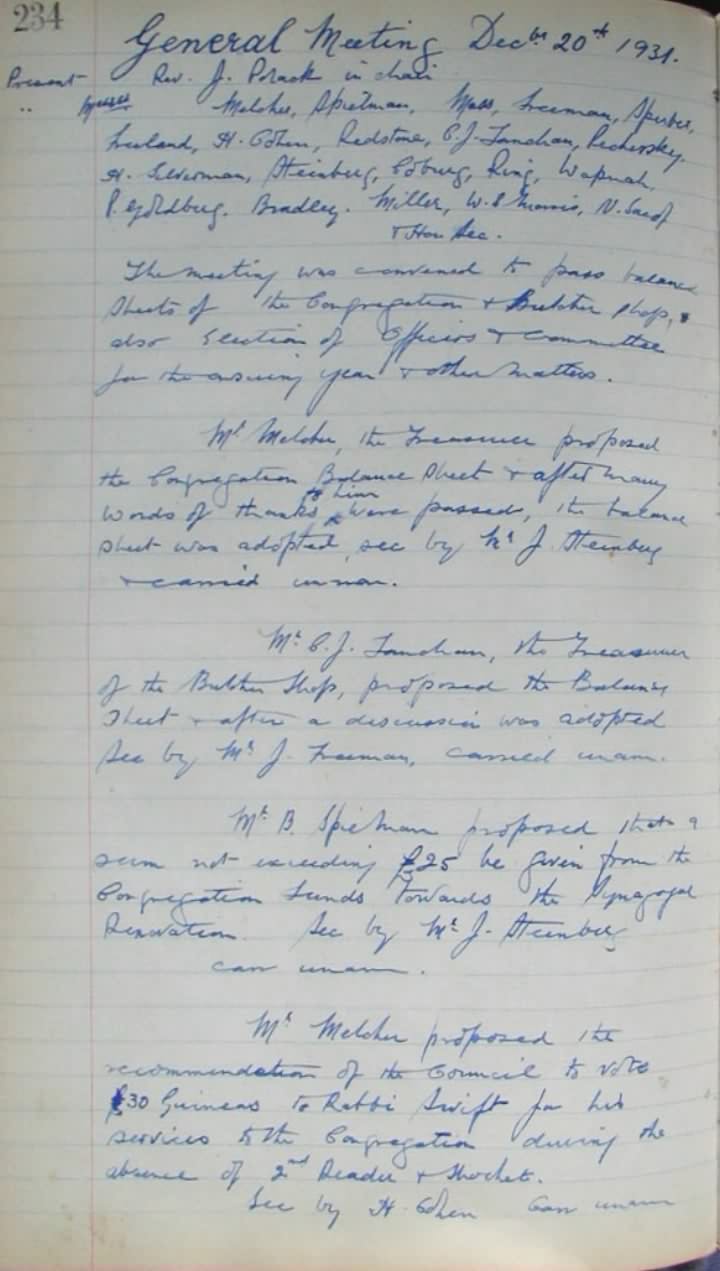 234
General Meeting Decbr 20th 1931.
Present Rev. J. Polack in chair
" Messrs Melcher, Spielman, Moss, Freeman, Sperber,
Freeland, H. Cohen, Redstone, C. J. Landman, Pechersky,
H. Silverman, Steinberg, Coburg, Ring, Wapnah,
P. Goldberg. Bradley. Miller, W. S. Morris, N.
& Hon Sec.
The meeting was convened to pass balance
sheets of the Congregation & Butcher Shop,
also Election of Officers & Committee
for the ensuing year & other matters.
Mr Melcher, the Treasurer proposed
the Congregation Balance Sheet & after many
words of thanks to him were passed, the balance
sheet was adopted, sec by Mr J. Steinberg
& carried unan.
Mr C. J. Landman, the Treasurer
of the Butcher Shop, proposed the Balance
Sheet & after a discussion was adopted
Sec by Mr J. Freeman, carried unan.
Mr B. Spielman proposed that a
sum not exceeding £25 be given from the
Congregation Funds towards the Synagogal
Renovation. Sec by Mr J. Steinberg
carr unan.
Mr Melcher proposed the
recommendation of the Council to vote
£30 Guineas to Rabbi Swift for his
services to the Congregation during the
absence of 2nd Reader & Shochet.
Sec by H. Cohen Carr unan